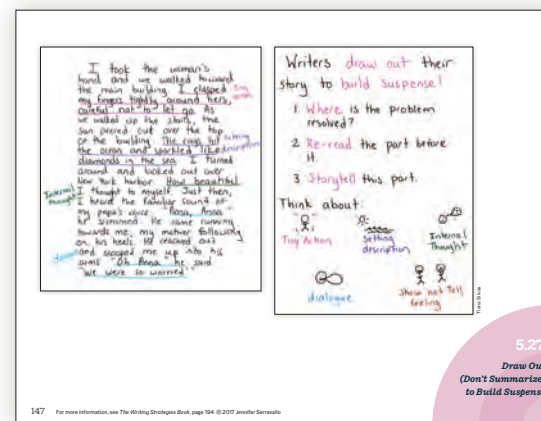 I took the woman's
hand and we walked toward
the main building. I clasped
my fingers tightly around hers,
careful not to let go. As
we walked up the stairs, the
sun peered out over the top
of the building. The rays hit
the ocean and sparkled like
diamonds in the sea. I turned
around and looked out over
New York harbor. How beautiful
I thought to myself. Just then,
I heard the familiar sound of
my papa's voice. "Anna, Anna"
he screamed. He came running
towards me, my mother following
on his heels. He reached out
and scooped me up into his
arms. "Oh Anna" he said
"We were so worried"
Tiny action
setting
description
Internal
thought
Writers draw out their
story to build suspense!
1. Where is the problem
resolved?
2. Re-read the part before
it.
3. Storytell this part.
Think about:
Tiny Action
setting
description
Internal
Thought
dialogue
Show not Tell
feeling
Tiana Silvas
5.27
Draw Ou
(Don't Summarize
to Build Suspens
147 For more information, see The Writing Strategies Book, page 194. © 2017 Jennifer Serravallo